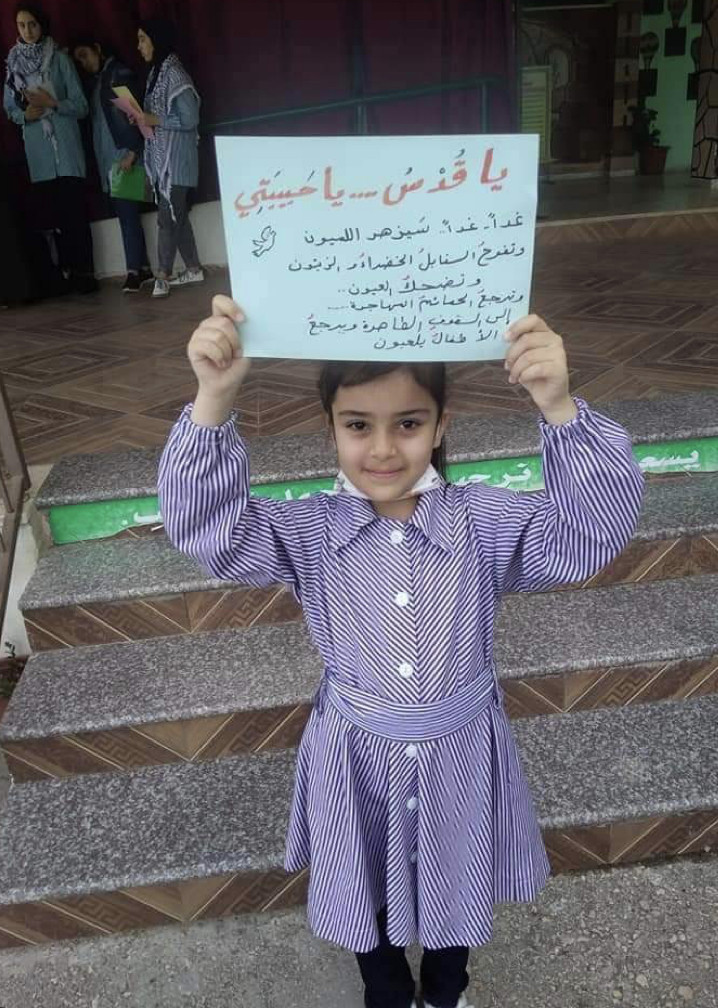 يا قُدْسُ ... يا حَبيبَتِي
غداً.. غداً.. سَيزهر الليمون
وتفرحُ السنابلُ الخضراءُ و الزيتون
وتضحكُ العيون..
وترجعُ الحمائمُ المهاجرة.....
إلى السقوفِ الطاهرة ويرجعُ
الأطفالُ يلعبون
يسعـ
نرحـ